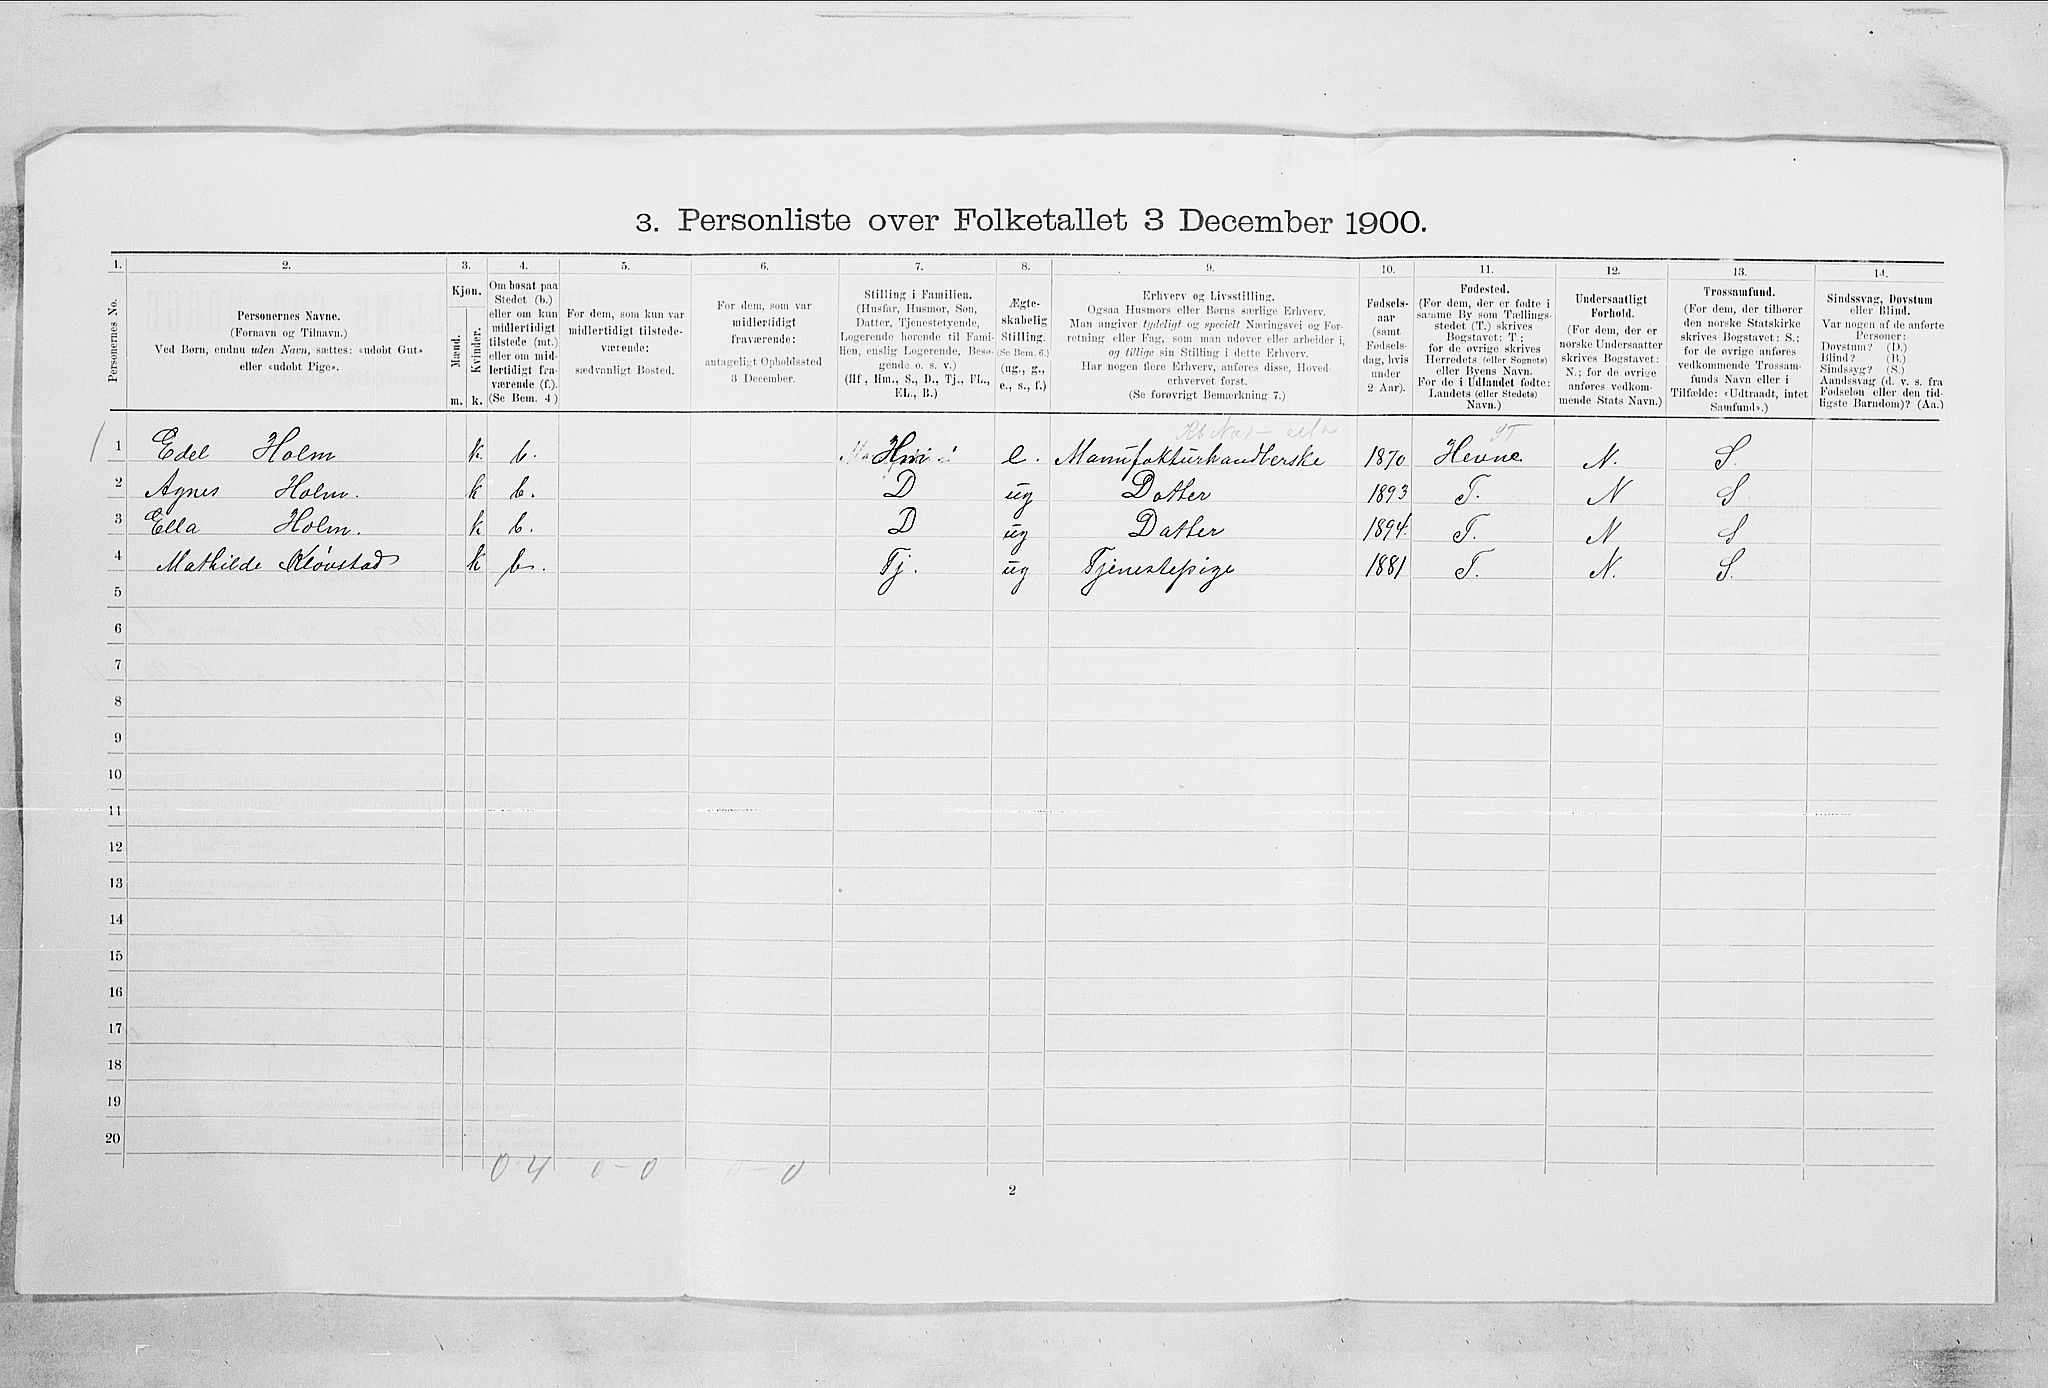 3. Personliste over Folketallet 3 December 1900.
1. 2. 3. 4. 5. 6. 7. 8. 9. 10. 11. 12. 13. 14.
Personernes No.
Personernes Navne.
(Fornavn og Tilnavn.)
Ved Børn, endnu uden Navn, sættes: «udøbt Gut»
eller «udøbt Pige».
Kjøn.
Mænd. Kvinder.
m. k.
Om bosat paa
Stedet (b.)
eller om kun
midlertidigt
tilstede (mt.)
eller om mid-
lertidigt fra-
værende (f.)
(Se Bem. 4)
For dem, som kun var
midlertidigt tilstede-
værende:
sædvanligt Bosted.
For dem, som var
midlertidigt
fraværende:
antageligt Opholdssted
3 December.
Stilling i Familien.
(Husfar, Husmor, Søn,
Datter, Tjenestetyende,
Logerende hørende til Fami-
lien, enslig Logerende, Besø-
gende o. s. v.)
(Hf, Hm., S., D., Tj., FL.,
EL., B.)
Ægte-
skabelig
Stilling.
(Se Bem. 6.)
(ug., g.,
e., s., f.)
Erhverv og Livsstilling.
Ogsaa Husmors eller Børns særlige Erhverv.
Man angiver tydeligt og specielt Næringsvei og For-
retning eller Fag, som man udøver eller arbeider i,
og tillige sin Stilling i dette Erhverv.
Har nogen flere Erhverv, anføres disse, Hoved-
erhvervet først.
(Se forøvrigt Bemærkning 7.)
Fødsels-
aar
(samt
Fødsels-
dag, hvis
under
2 Aar).
Fødested.
(For dem, der er fødte i
samme By som Tællings-
stedet (T.) skrives
Bogstavet: T;
for de øvrige skrives
Herredets (eller Sognets)
eller Byens Navn.
For de i Udlandet fødte:
Landets (eller Stedets)
Navn.)
Undersaatligt
Forhold.
(For dem, der er
norske Undersaatter
skrives Bogstavet:
N.; for de øvrige
anføres vedkom-
mende Stats Navn.)
Trossamfund.
(For dem, der tilhører
den norske Statskirke
skrives Bogstavet: S.;
for de øvrige anføres
vedkommende Trossam-
funds Navn eller i
Tilfælde: «Udtraadt, intet
Samfund».)
Sindssvag, Døvstum
eller Blind.
Var nogen af de anførte
Personer:
Døvstum? (D.)
Blind? (B.)
Sindssyg? (S.)
Aandssvag (d. v. s. fra
Fødselen eller den tid-
ligste Barndom)? (Aa.)
ST
1 Edel Holm k b. Hm e. Manufakturhandlerske 1870 Hevne N. S.
2 Agnes Holm. k b. D ug Datter 1893 T. N S
3 Ella Holm. k b. D ug Datter 1894. T. N S
4 Mathilde Kløvstad k b. Tj. ug Tjenestepige 1881 T. N. S.
5
6
7
8
9
10
11
12
13
14
15
16
17
18
19
20
0 4 0-0 0-0
2